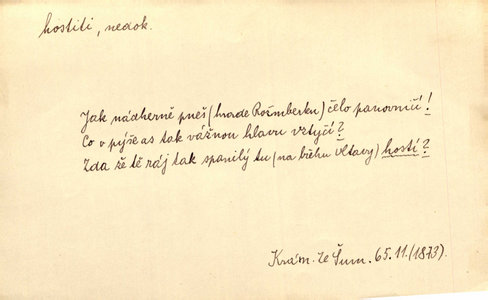 hostiti, nedok.
Jak nádherně pneš (hrade Rožmberku) čelo panovničí!
Co v pýše as tak vážnou hlavu vztyčí?
Zda že tě ráj tak spanilý tu (na břehu Vltavy) hostí?
Krám. Ze Šum. 65.11.(1873).